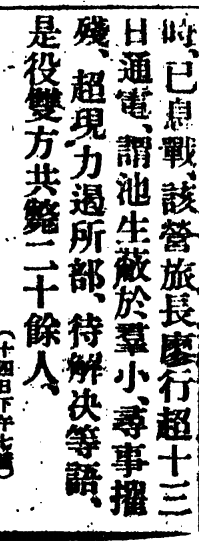 時、已息戰、該營旅長廖行超十三
日通電、謂池生蔽於羣小、尋事摧
殘、超現力遏所部、待解决等語、
是役雙方共斃二十餘人、
（十四日下午七鐘）